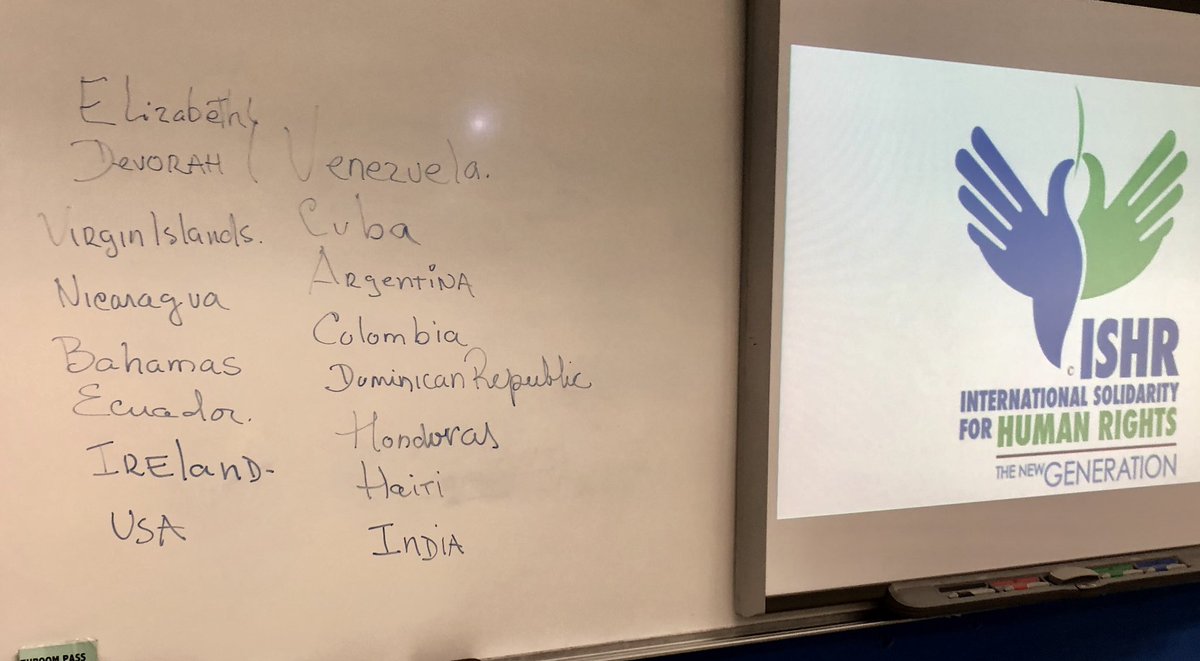 Elizabeth
Devorah
Venezuela.
Virgin Islands.
Cuba
Nicaragua
Argentina
Bahamas
Colombia
Ecuador.
Dominican Republic
Ireland-
Honduras
USA
Haiti
India
© ISHR
INTERNATIONAL SOLIDARITY
FOR HUMAN RIGHTS
THE NEW GENERATION
PASS